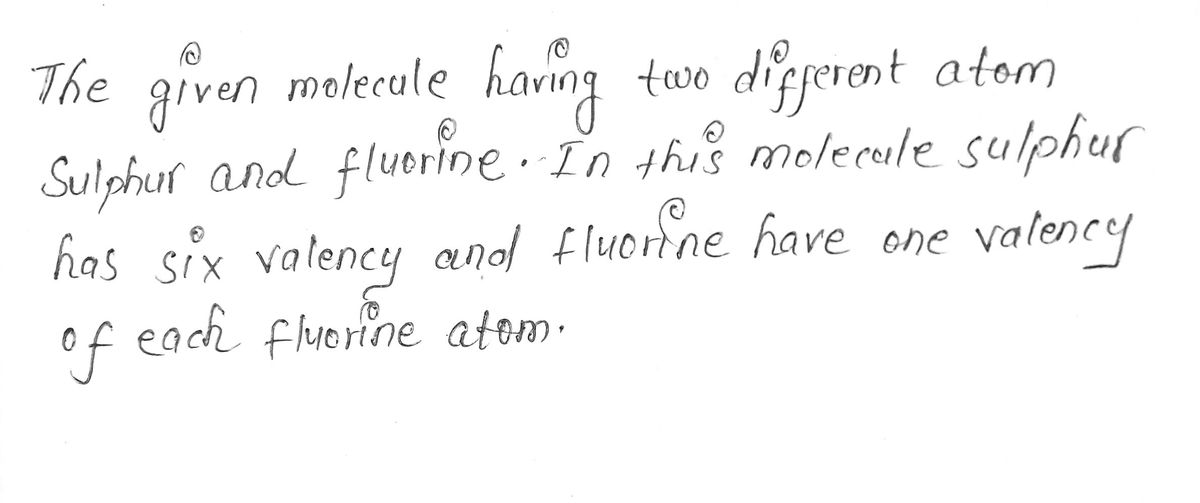 The given molecule having two different atom
Sulphur and fluorine. In this molecule sulphur
has six valency and fluorine have one valency
of each fluorine atom.